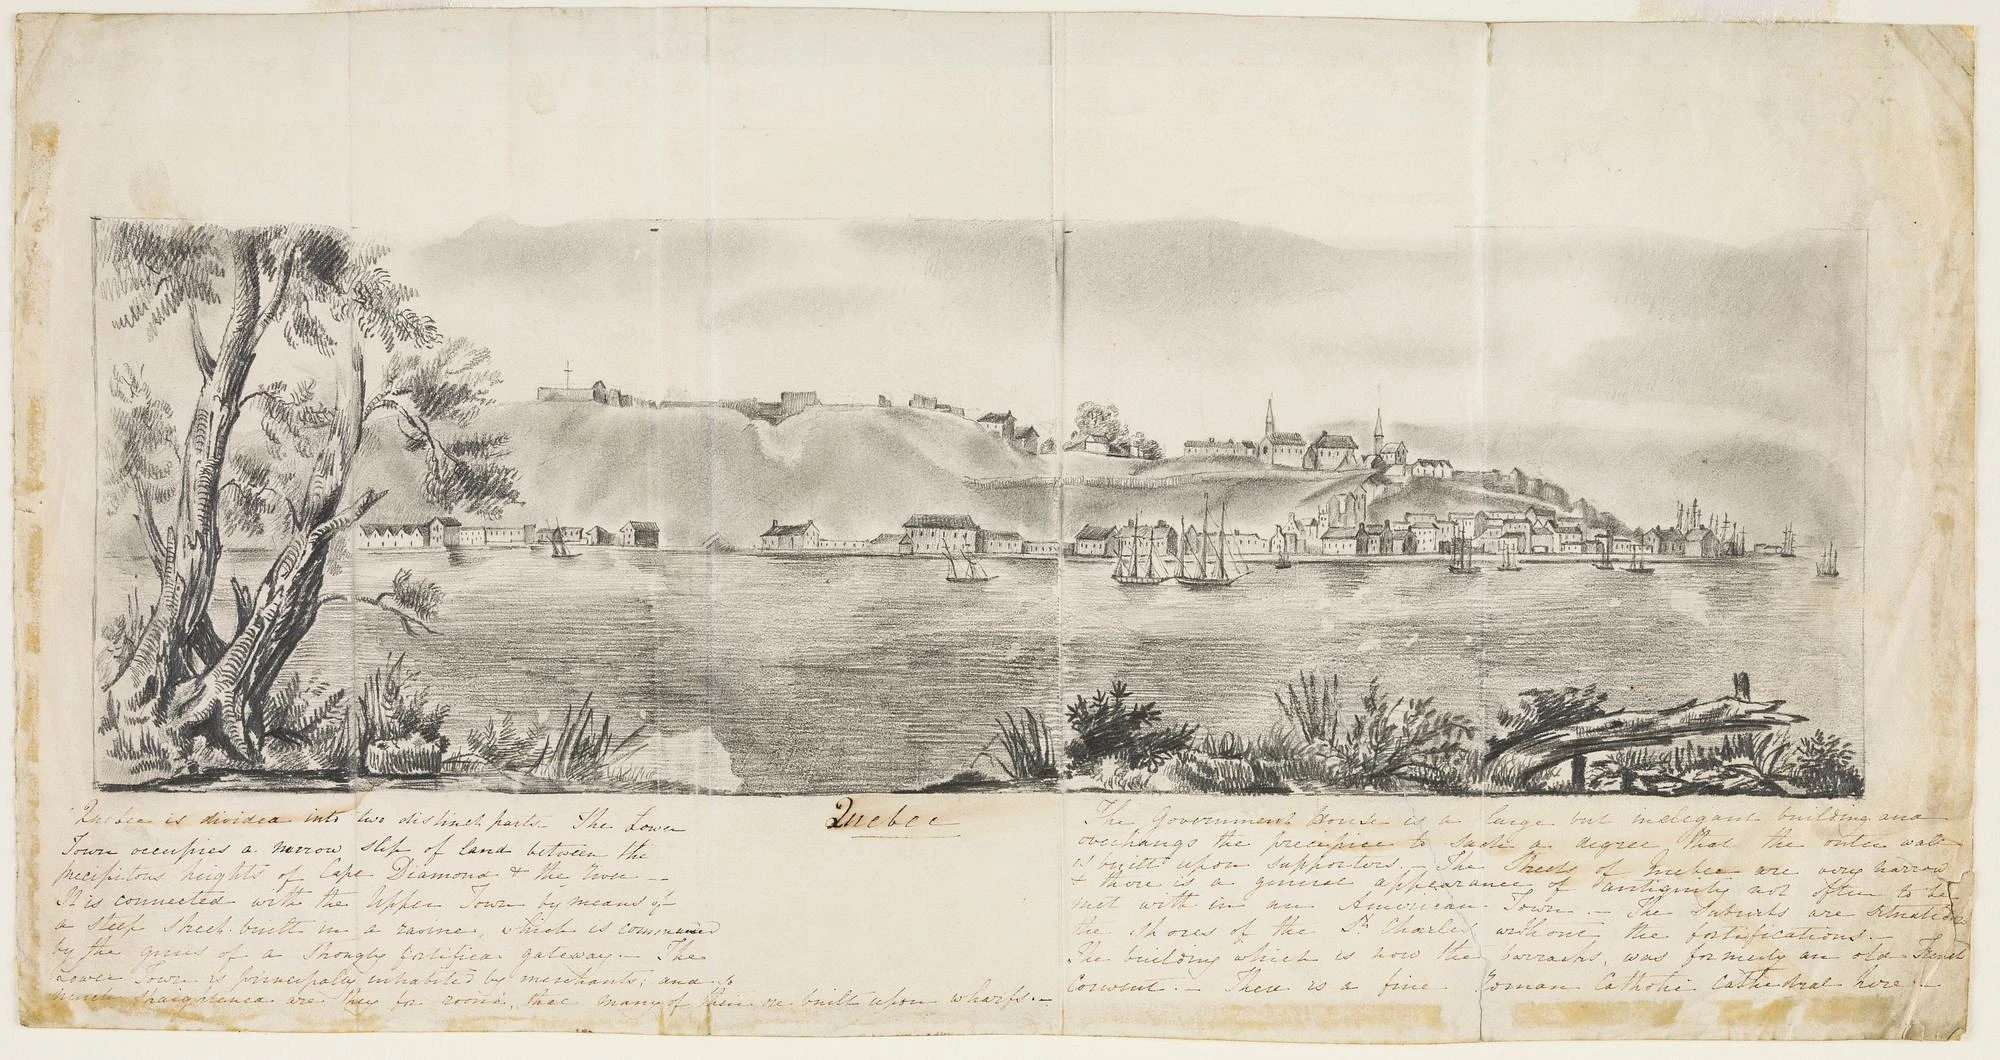 Quebec is divided into two distinct parts. The Lower
Town occupies a narrow slip of land between the
precipitous heights of Cape Diamond & the river —
It is connected with the Upper Town by means of
a steep street built in a ravine, which is commanded
by the guns of a strongly fortified gateway. — The
Lower Town is principally inhabited by merchants; and so
much straightened are they for room, that many of them are built upon wharfs. —
Quebec
The Government House is a large but inelegant building and
overhangs the precipice to such a degree that the outer wall
is built upon supporters. — The Streets of Quebec are very narrow
& there is a general appearance of antiquity not often to be
met with in an American Town. — The Suburbs are situated on
the shores of the St. Charles without the fortifications. —
The building which is now the barracks, was formerly an old French
Convent. — There is a fine Roman Catholic Cathedral here. —